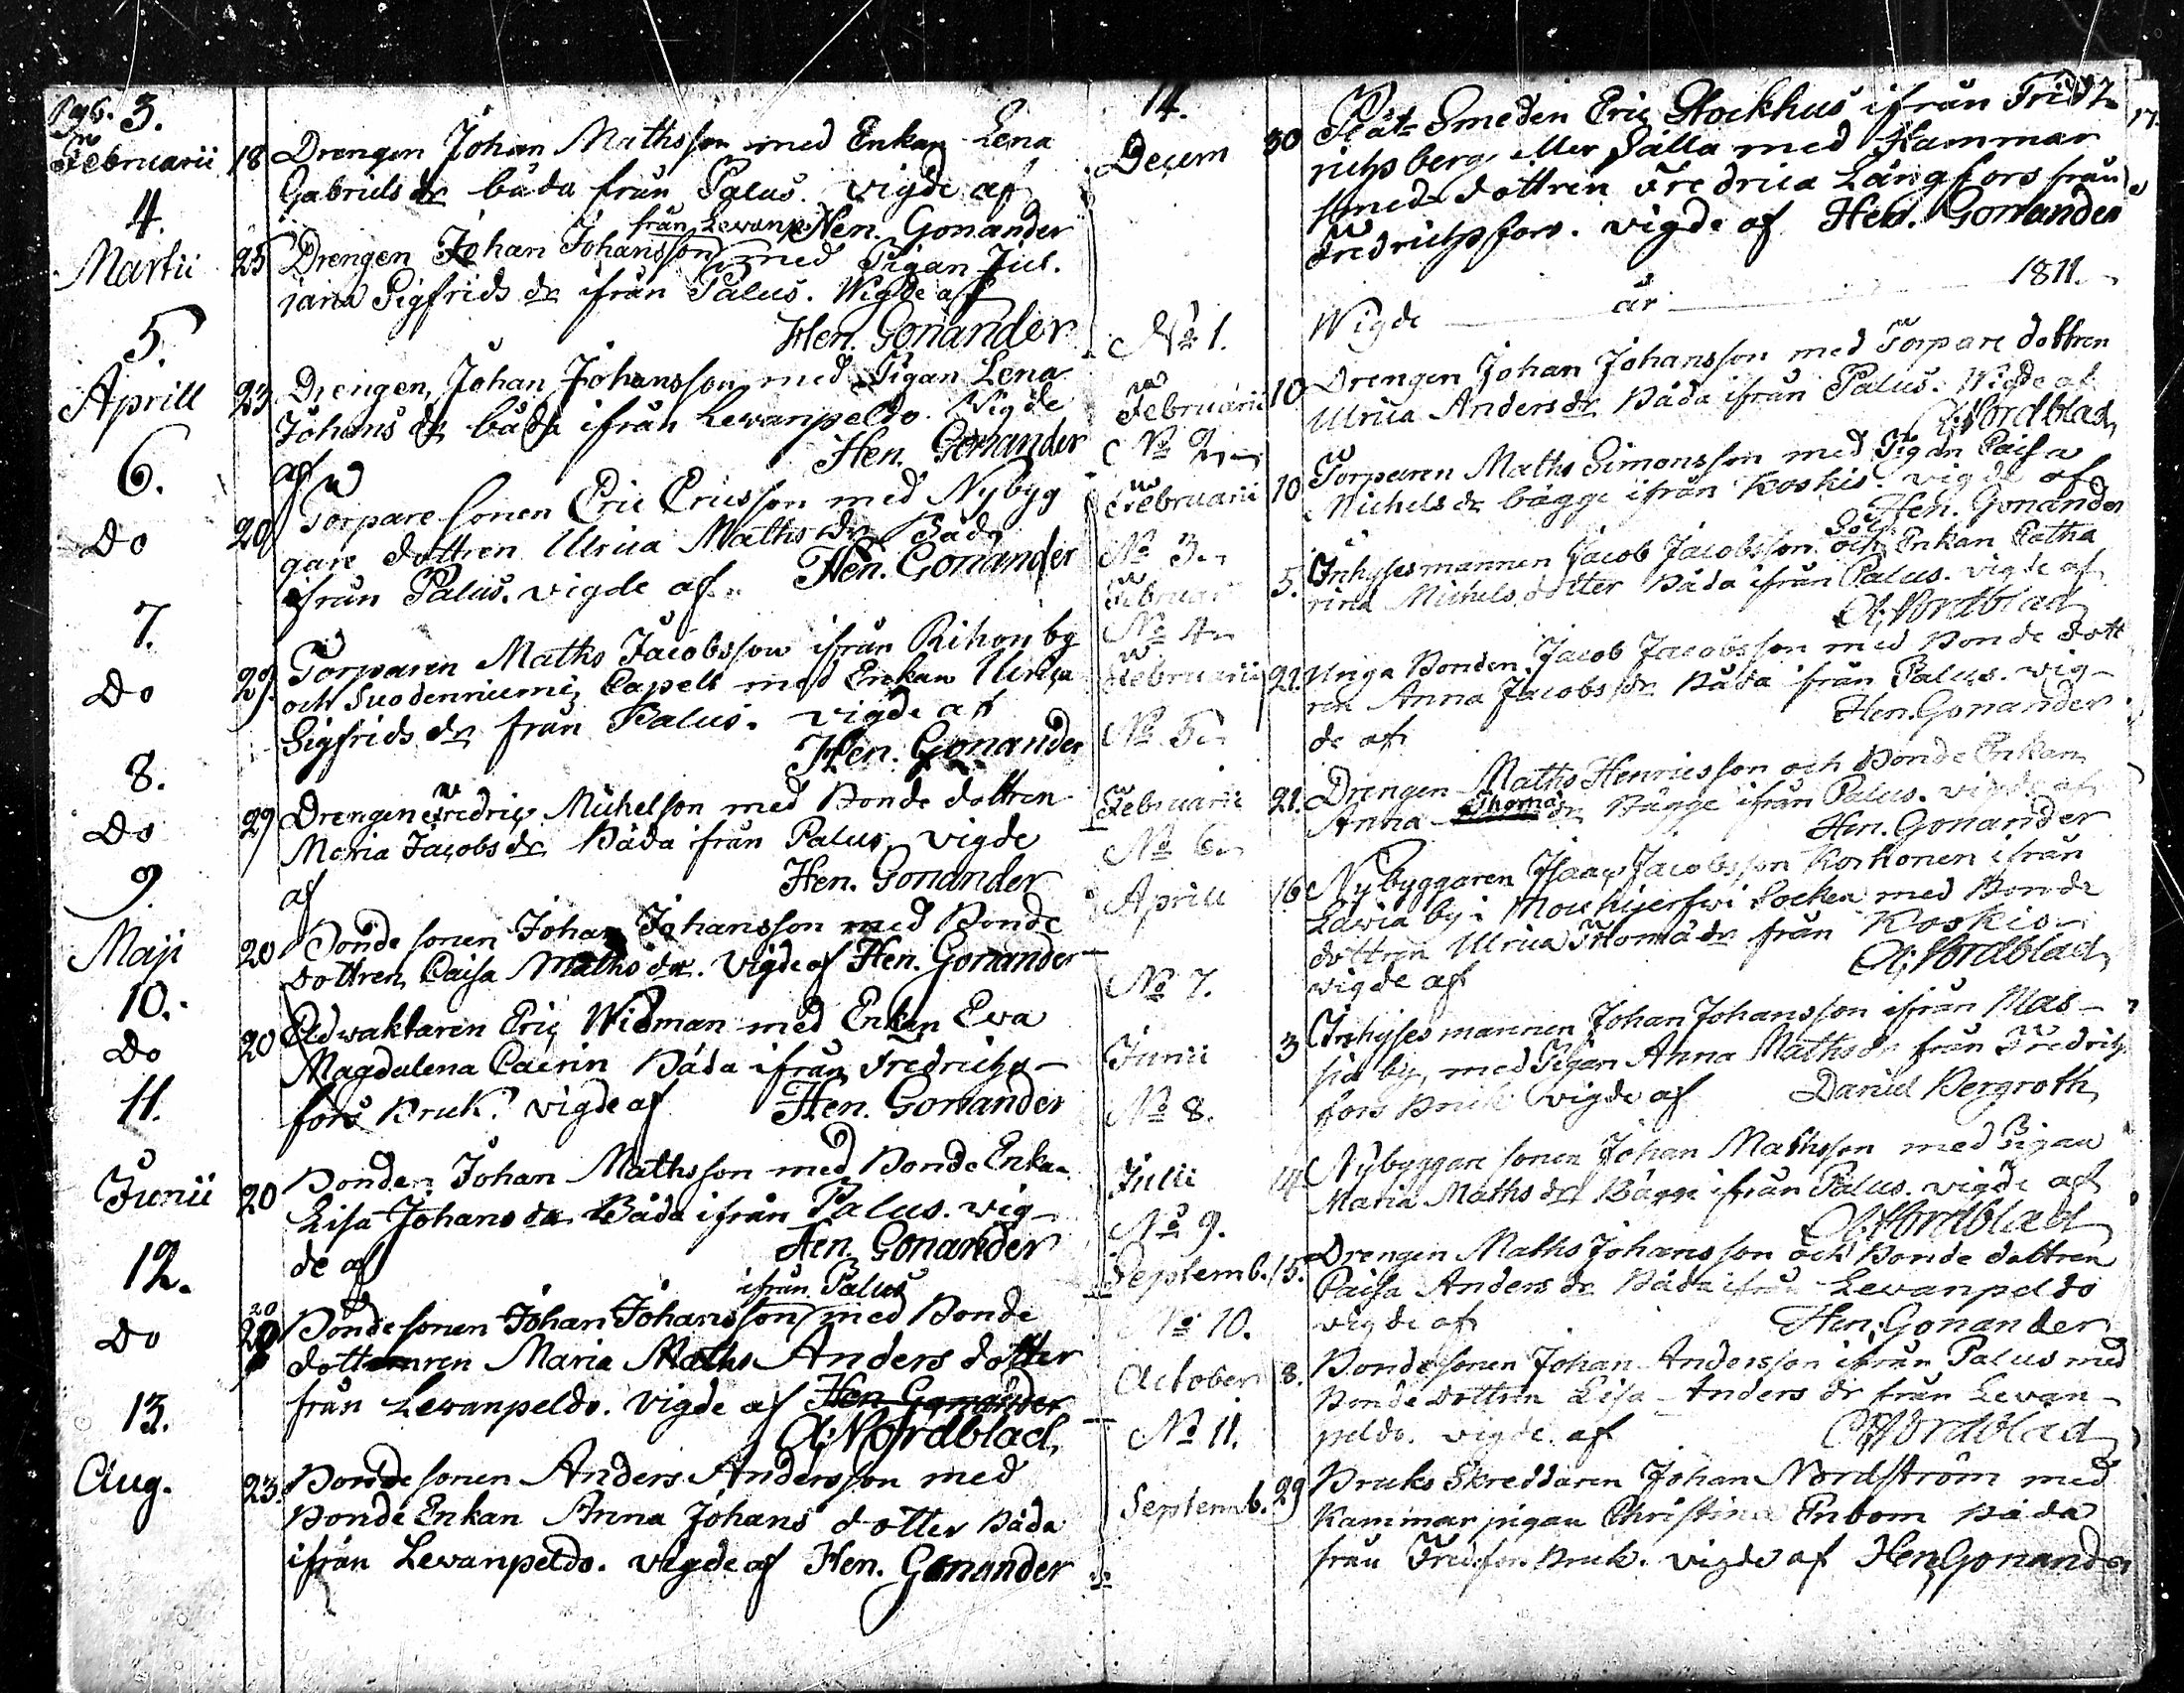 Pag. 3.
Februarii 18 Drengen Johan Mathsson med Enkan Lena
Gabriels dr båda från Palus. vigde af
Hen. Gonander
4.
från Levanp.
Martii 25 Drengen Johan Johansson med Pigan Jul.
jana Sigfrids dr ifrån Palus. Wigde af
Hen. Gonander
5.
Aprill 23 Drengen Johan Johansson med Pigan Lena
Johans dr båda ifrån Levanpeldo. Vigde
af Hen. Gonander
6.
Do 29 Torpare sonen Eric Ericsson med Nybyg
gare dottren Ulrica Maths dr Båda
ifrån Palus. vigde af. Hen. Gonander
7.
Do 29. Torparen Maths Jacobsson ifrån Rihon by
och Suodenniemi Capell med Enkan Ulrica
Sigfrids dr från Palus. vigde af
Hen. Gonander
8.
Do 29 Drengen Fredric Michelson med Bonde dottren
Maria Jacobs dr Båda ifrån Palus. vigde
af Hen. Gonander
9.
Maji 20 Bonde sonen Johan Johansson med Bonde
dottren Caisa Maths dr. vigde af Hen. Gonander
10.
Do 20 Eldwaktaren Eric Widman med Enkan Eva
Magdalena Båda ifrån Fredrichs-
fors Bruk. vigde af Hen. Gonander
11.
Junii 20 Bonden Johan Mathsson med Bonde Enkan
Lisa Johans dr Båda ifrån Palus. vig-
de af Hen. Gonander
12.
ifrån Palus
Do 20 Bonde sonen Johan Johansson med Bonde
dotteren Maria Maths Anders dotter
från Levanpeldo. vigde af Hen. Gonander
A: Nordblad,
13.
Aug. 23. Bonde sonen Anders Andersson med
Bonde Enkan Anna Johans dotter Båda
ifrån Levanpeldo. vigde af Hen. Gonander
14.
Decem 30 Plåt-Smeden Eric Stockhus ifrån Frid-
richsberg eller Sålla med Hammar
smeds dottren Fredrica Långfors från
Fredrichsfors. vigde af Hen. Gonander
Wigde år 1811.
No 1.
Februarii 10 Drengen Johan Johansson med Torpare dottren
Ulrica Anders dr Båda ifrån Palus. Wigde af
A: Nordblad,
No 2
Februarii 10 Torparen Maths Simonsson med Pigan Caisa
Michels dr bägge ifrån Koskis. vigde af
Hen. Gonander
No 3
Februar 5. Inhyses mannen Jacob Jacobsson och Enkan Catha
rina Michels dotter Båda ifrån Palus. vigde af
A: Nordblad
No 4
Februarii 21. Unga Bonden Jacob Jacobsson med Bonde dott
ren Anna Jacobs dr Båda från Palus. vig-
de af Hen. Gonander
No 5
Februarii 21. Drengen Maths Henricsson och Bonde Enkan
Anna Thomas dr Bägge ifrån Palus. vigde af
Hen. Gonander
No 6
Aprill 16 Nybyggaren Isaac Jacobsson Korhonen ifrån
Lavia by i Mouhijerfwi Socken med Bonde
dottren Ulrica Thomas dr från Koskis
vigde af A: Nordblad,
No 7.
Junii 3 Inhyses mannen Johan Johansson ifrån Mas-
sia by, med Pigan Anna Maths dr från Fredrichs
fors Bruk vigde af Daniel Bergroth
No 8.
Julii 14 Nybyggare sonen Johan Mathsson med Pigan
Maria Maths dr Bägge ifrån Palus. vigde af
A: Nordblad
No 9.
Septemb. 15. Drengen Maths Johansson och Bonde dottren
Caisa Anders dr Båda ifrån Levanpeldo
vigde af Hen. Gonander
No 10.
October 8. Bonde sonen Johan Andersson ifrån Palus med
Bonde dottren Lisa Anders dr från Levan-
peldo. vigde af A: Nordblad
No 11.
Septemb. 29 Bruks Skreddaren Johan Nordström med
Kammar pigan Christina Enbom Båda
från Fredr.fors Bruk. vigde af Hen. Gonander